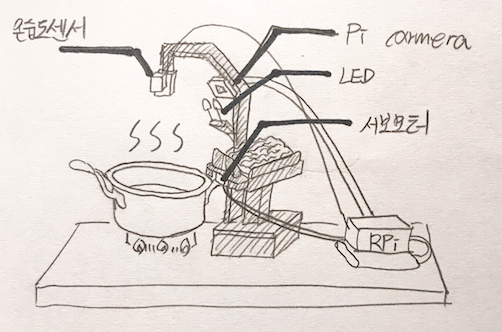 온습도센서
Pi camera
LED
서보모터
RPi